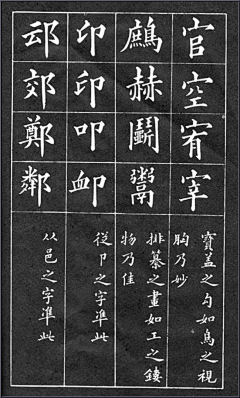 官
空
宥
宰
寶盖之勾如鳥之視
胸乃妙
鷓
赫
鬭
鬻
排纂之畫如工之鏤
物乃佳
印
叩
卹
從卩之字準此
郊
鄭
鄰
从邑之字準此